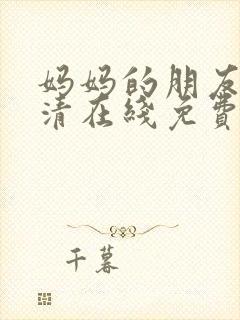 妈妈的朋友
清在线免费
千暮